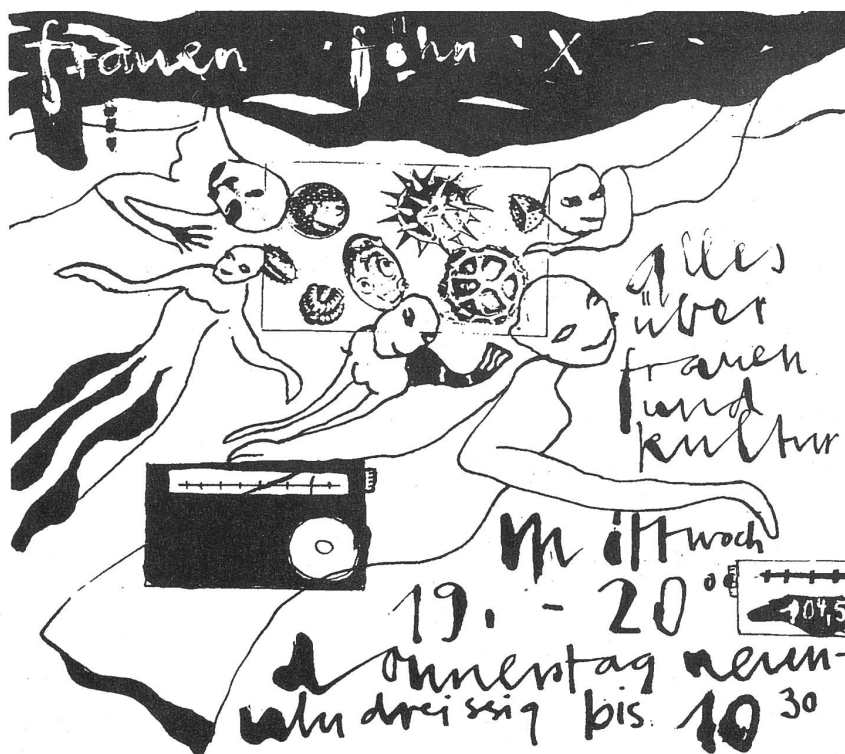 frauen föhn X
alles
über
frauen
und
kultur
Mittwoch
19. - 20°°
104,5
donnerstag neun-
uhr dreissig bis 10 30